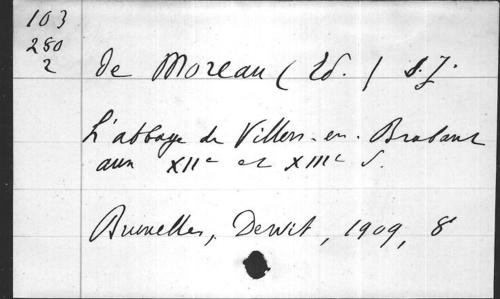 103
280
2
de Moreau (Ed.) S.J.
L'abbaye de Villers-en-Brabant
aux XIIe et XIIIe S.
Bruxelles, Dewit, 1909, 8°